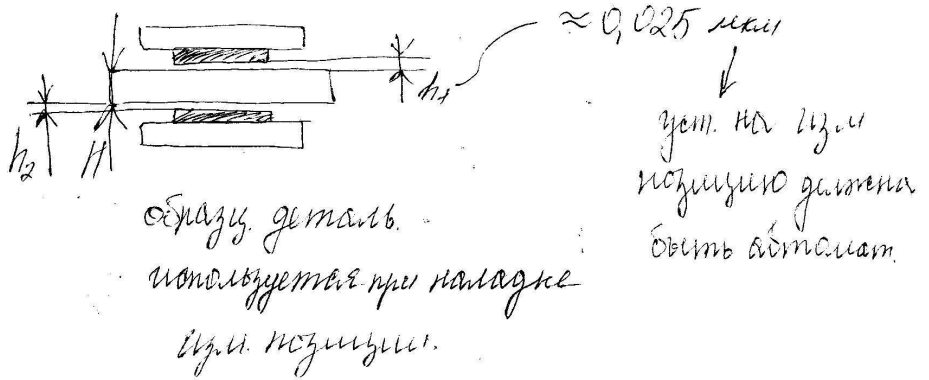 ≈ 0,025 мкм
h₁
h₂
H
уст. на изм
позицию должна
быть автомат.
образц. деталь.
используется при наладке
изм. позиции.